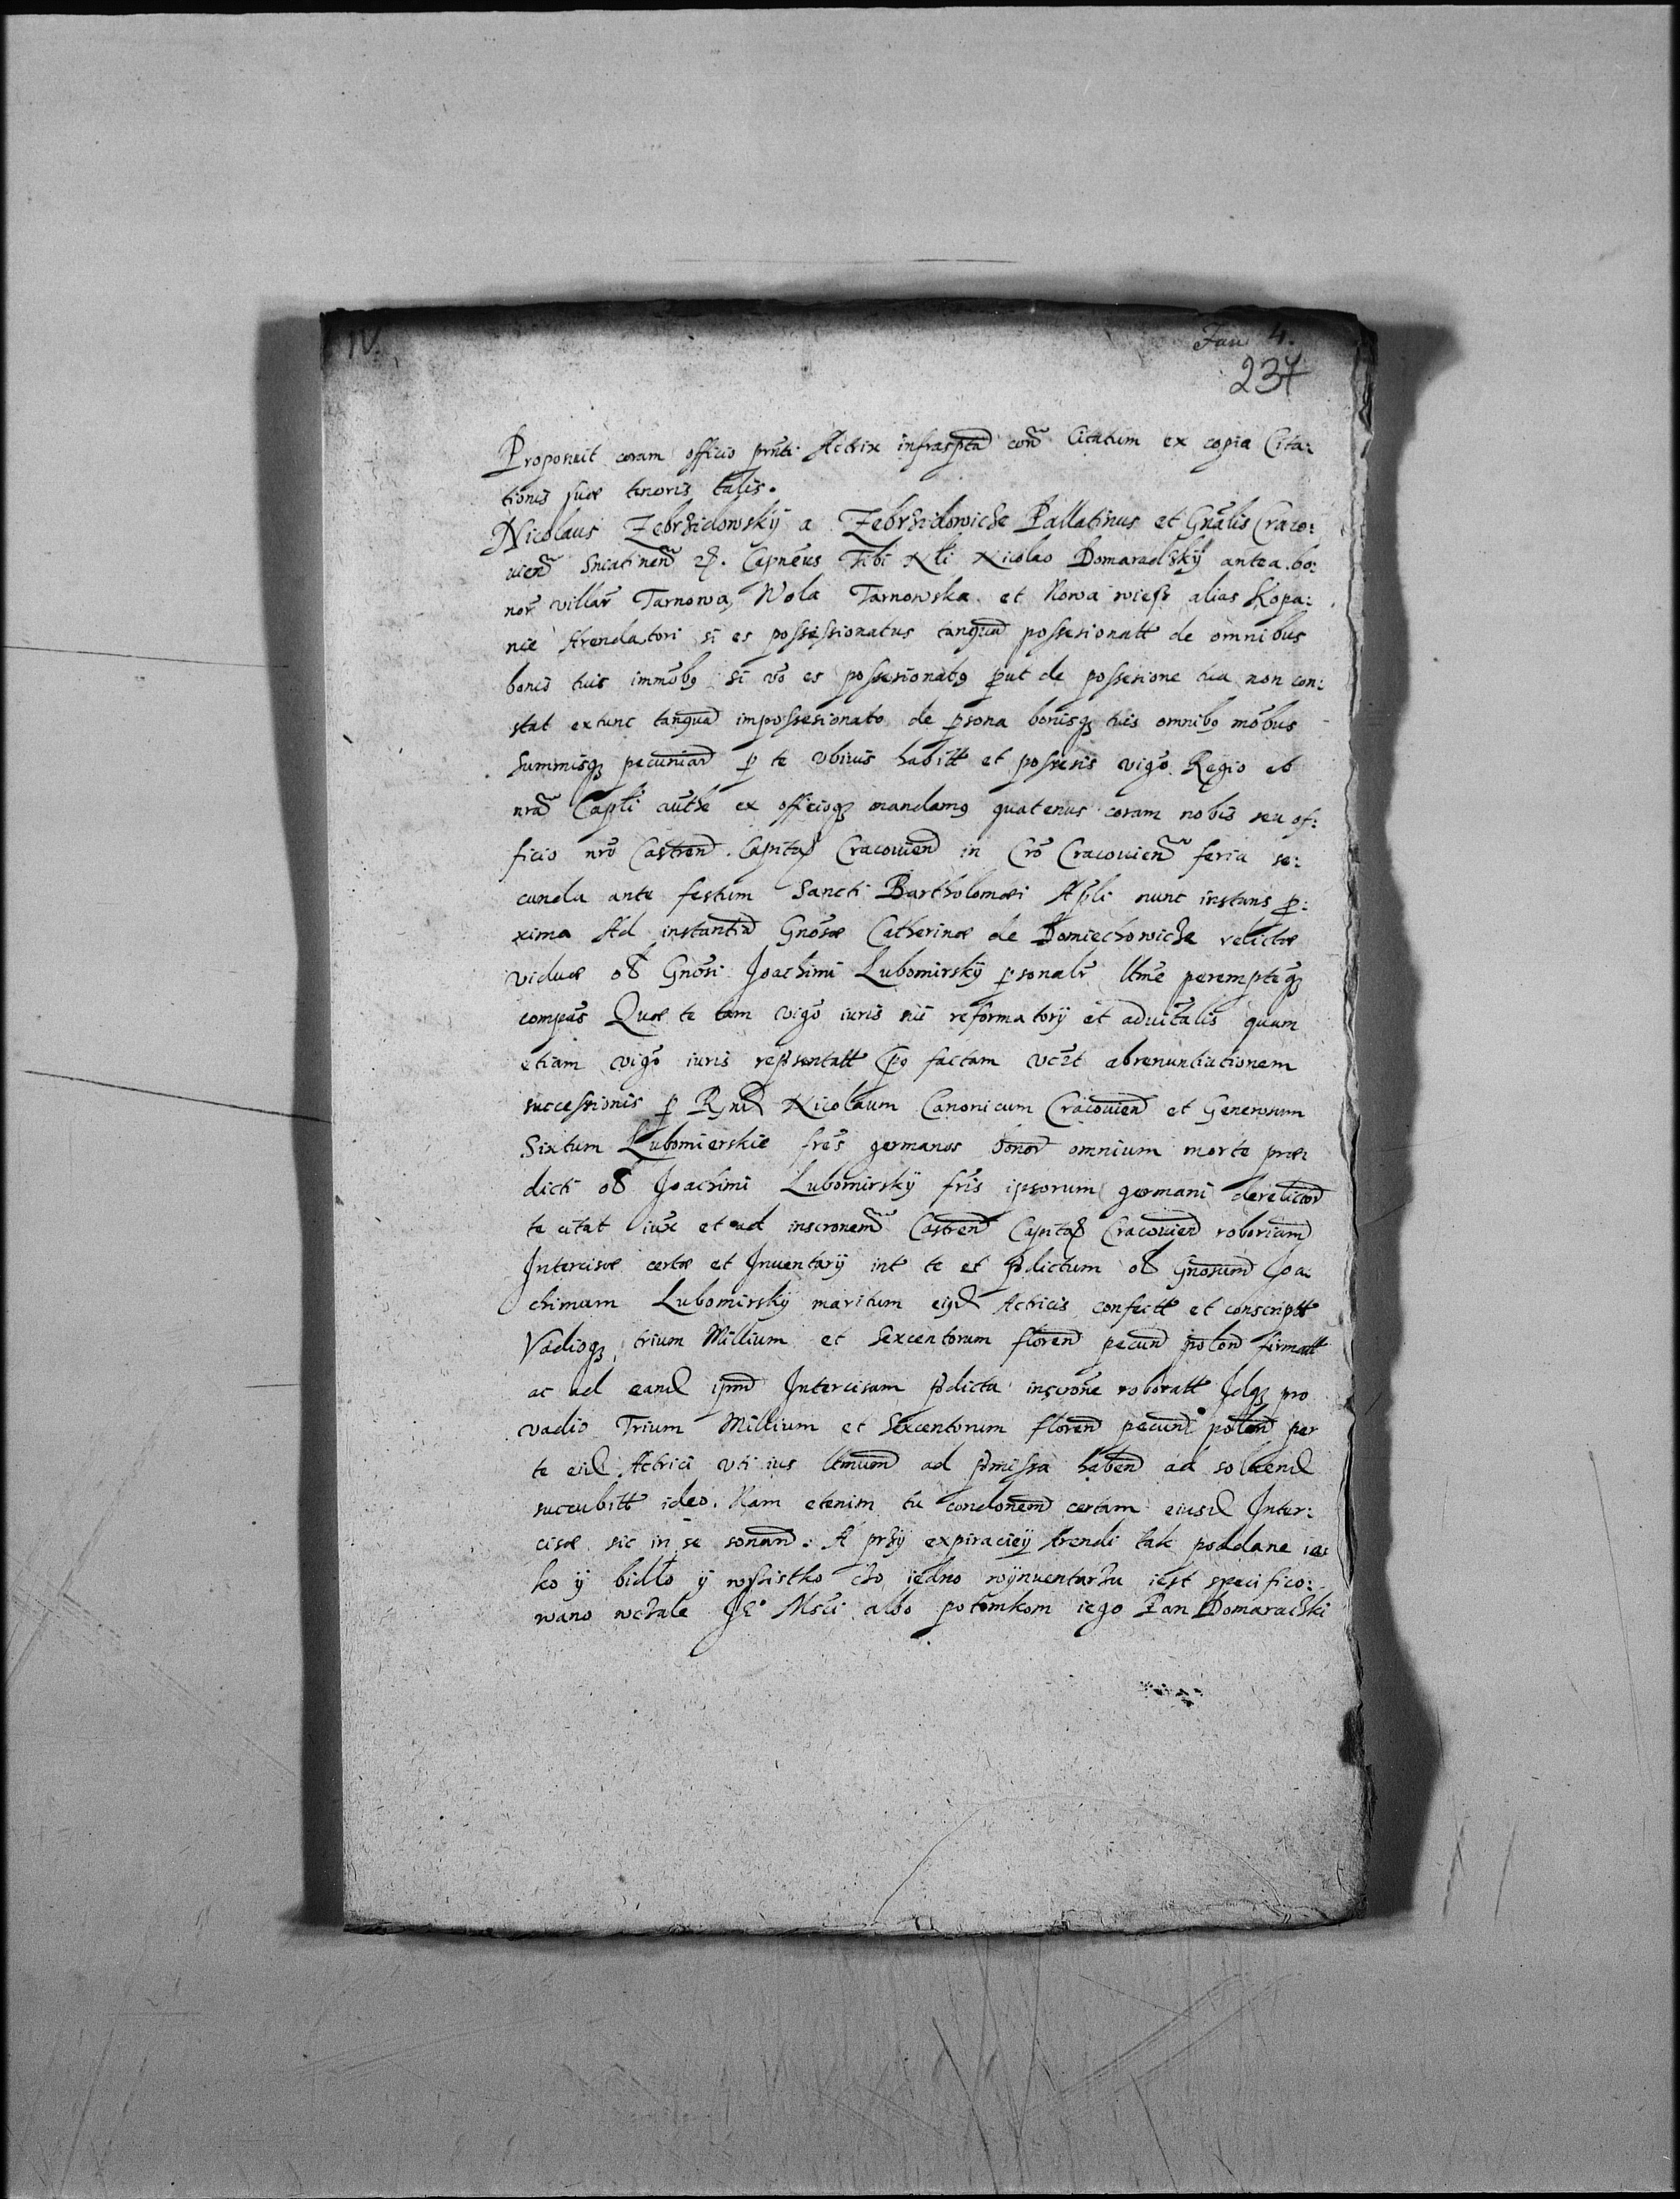 IV.
4.
237
Proponit coram officio prnti Actrix infrasptã conã Citatum ex copia Cita:
tionis suæ tenoris talis.
Nicolaus Zebrzidowskÿ a Zebrzidowicze Pallatinus et Gnãlis Craco:
vieñ Sniatineñ. Capneus Tibi Nli Nicolao Domaradzkÿ antea bo:
nor villar Tarnowa, Wola Tarnowska et Nowa wiess alias Kopa:
nie Arendatori si es possessionatus tanquã possesionatt de omnibus
bonis tuis immobg si vo es possesionatg put de possesione tua non con:
stat extunc tanquã impossesionato de psona bonisqz tuis omnibg mobus
summisqz pecuniar p te vbivis habitt et possesis vigõ Regio et
nrã Captli authe ex officioqz mandamg quatenus coram nobis seu of:
ficio nrõ Castreñ Capitał Cracouieñ in Crõ Cracouieñ feria se:
cunda ante festum Sancti Bartholomæi Apli nunc instans p:
xima Ad instantiã Gnosæ Catherinæ de Domiechowicze relictæ
viduæ ol Gnosi Joachimi Lubomirskÿ psonalr ltme peremptegz
compeas Quæ te tam vigõ iuris sui reformatorÿ et aduitalis quam
etiam vigõ iuris repsentatt pg factam abrenuntiationem
successionis p Rnd Nicolaum Canonicum Cracouieñ et Generosum
Sixtum Lubomierskie frẽs germanos bonor omnium morte præ
dicti ol Joachimi Lubomirskÿ fris ipsorum germani derelictor
te citat iux et ad inscronem Castreñ Capitał Cracouieñ roboriam
Intercisæ certæ et Inuentarÿ int te et pdictum ol Gnosum Joa
chimum Lubomirskÿ maritum eigd Actricis confectt et conscriptt
Vadiogz trium Millium et Sexcentorum floren pecun polon firmatt
ac ad eand ipm Intercisam pdicta inscrone roboratt Idgz pro
vadio Trium Millium et Sexcentorum floren pecun polon per
te eid Actrici vti ius ltmum ad pmissa haben ad soluend
succubitt ideo. Nam etenim tu condonem certam eiusd Inter:
cisæ sic in se sonan. A przÿ expiracieÿ Arendi tak poddane ia:
ko ÿ bidło ÿ wszistko czo iedno wÿnuentarzu iest specifico:
wano wczale Je° Msci albo potomkom iego Pan Domaradzki